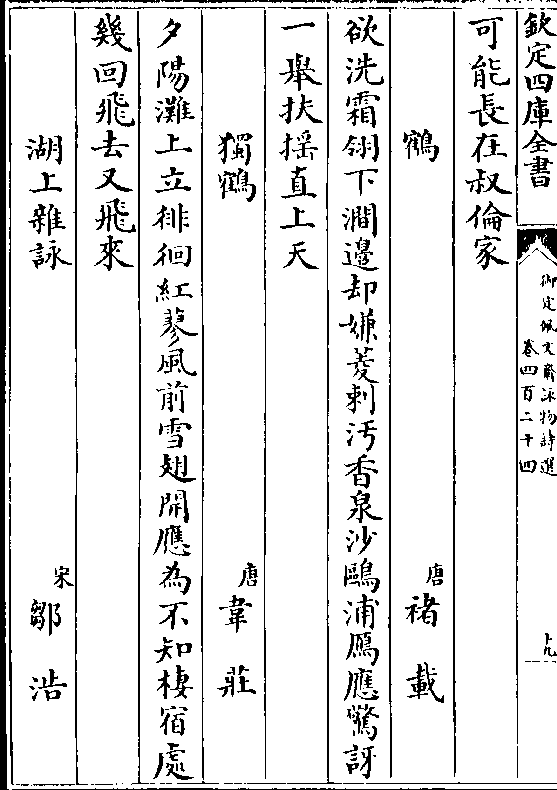 欽定四庫全書
御定佩文齋詠物詩選
卷四百二十四
九
可能長在叔倫家
鶴
唐
褚載
欲洗霜翎下澗邊却嫌菱刺汚香泉沙鷗浦鴈應驚訝
一舉扶揺直上天
獨鶴
唐
韋莊
夕陽灘上立徘徊紅蓼風前雪翅開應為不知棲宿處
幾回飛去又飛來
湖上雜詠
宋
鄒浩